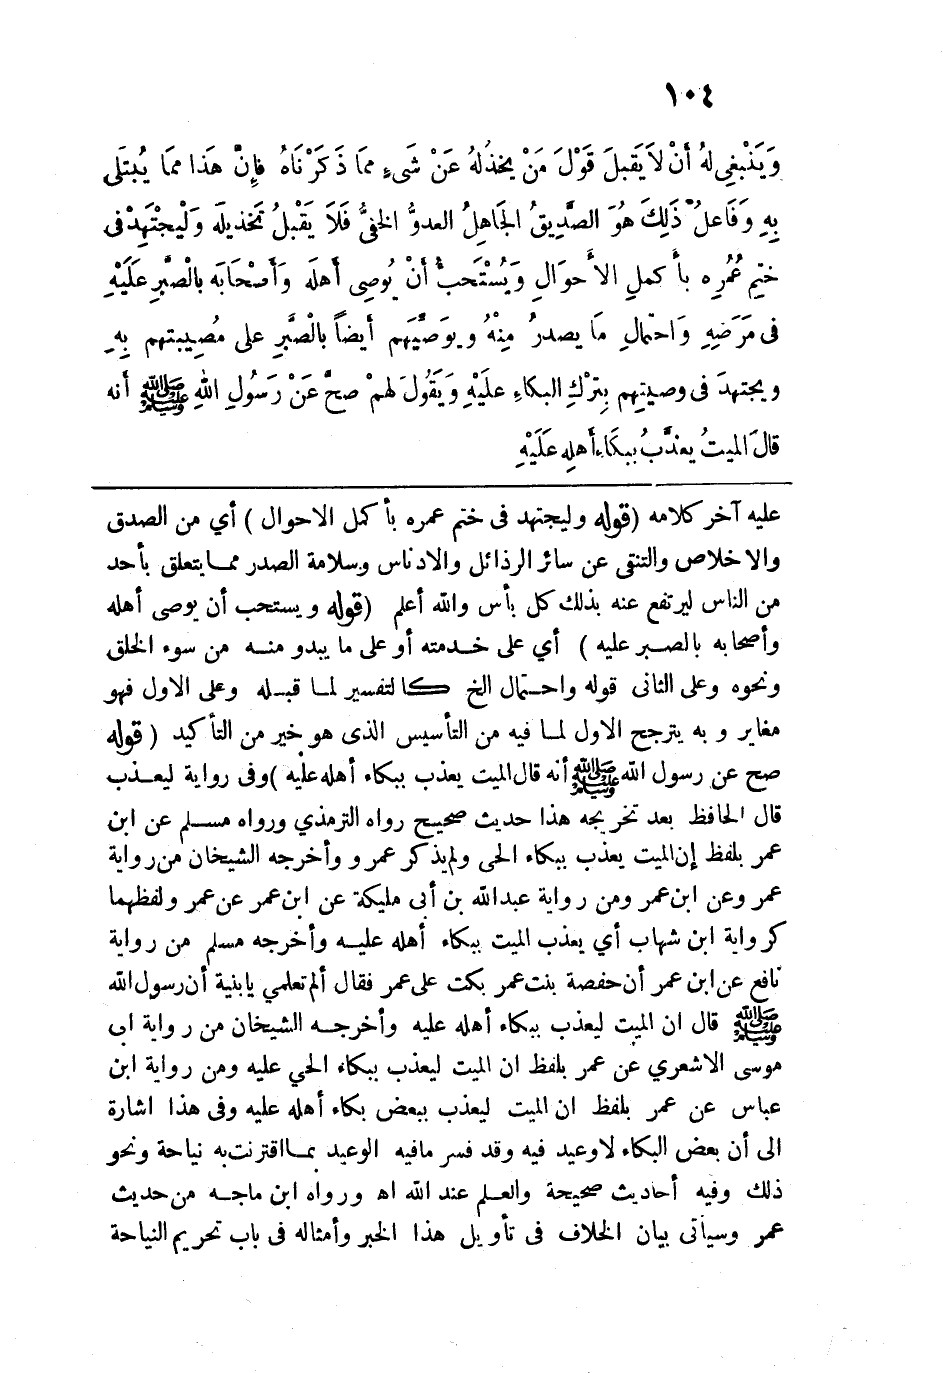 ١٠٤
وَيَنْبَغِى لهُ أنْ لاَ يَقبلَ قَوْلَ مَنْ يخذلهُ عَنْ شَىءٍ ممَا ذَكَرْنَاهُ فإِنَّ هَذا ممَا يُبتَلى
بِهِ وَفَاعلُ ذَلِكَ هُوَ الصَّدِيقُ الجَاهِلُ العدوُّ الخفىُّ فَلاَ يَقْبلُ تَخذيلَه وَلْيجْتَهِدْ فى
ختمِ عُمُرِه بأَ كملِ الأَحوَالِ وَيُسْتَحبُّ أنْ يُوصِى أهلَه وَأَصْحَابَه بالْصَّبرِ عَلَيْهِ
فى مَرَضِهِ وَاحتمالِ مَا يصدرُ مِنْهُ ويوَصَّيَهم أيضاً بالْصَّبَرِ على مُصِيبتهم بِهِ
ويجتهدَ فى وصيتِهم بِتركِ البكاءِ علَيْهِ وَيَقُولَ لهمْ صحَّ عَنْ رَسُولِ اللهِ ﷺ أنه
قالَ الميتُ يعذَّبُ ببكَاءِ أهلِه عَلَيْهِ
عليه آخر كلامه (قوله وليجتهد فى ختم عمره بأ كمل الاحوال ) أي من الصدق
والاخلاص والتنقى عن سائر الرذائل والادناس وسلامة الصدر ممـا يتعلق بأحد
من الناس ليرتفع عنه بذلك كل بأس والله أعلم (قوله ويستحب أن يوصى أهله
وأصحابه بالصـبر عليه ) أي على خـدمته أو على ما يبدو منـه من سوء الخلق
ونحوه وعلى الثانى قوله واحتمال الخ كالتفسير لمـا قبـله وعلى الاول فهو
مغاير و به يترجح الاول لمـا فيه من التأسيس الذى هو خير من التأكيد ( قوله
صح عن رسول الله ﷺ أنه قال الميت يعذب ببكاء أهله عليه ) وفى رواية ليعـذب
قال الحافظ بعد تخريجه هذا حديث صحيح رواه الترمذي ورواه مسـلم عن ابن
عمر بلفظ إن الميت يعذب ببكاء الحى ولم يذكر عمر و وأخرجه الشيخان من رواية
عمر وعن ابن عمر ومن رواية عبدالله بن أبى مليكة عن ابن عمر عن عمر ولفظهما
كرواية ابن شهاب أي يعذب الميت ببكاء أهله عليـه وأخرجه مسلم من رواية
نافع عن ابن عمر أن حفصة بنت عمر بكت على عمر فقال ألم تعلمي يابنية أن رسول الله
ﷺ قال ان الميت ليعذب ببكاء أهله عليه وأخرجـه الشيخان من رواية ابى
موسى الاشعري عن عمر بلفظ ان الميت ليعذب ببكاء الحي عليه ومن رواية ابن
عباس عن عمر بلفظ ان الميت ليعذب ببعض بكاء أهله عليه وفى هذا اشارة
الى أن بعض البكاء لاوعيد فيه وقد فسر مافيه الوعيد بمـا اقترنت به نياحة ونحو
ذلك وفيه أحاديث صحيحة والعـلم عند الله اه ورواه ابن ماجـه من حديث
عمر وسيأتى بيان الخلاف فى تأويل هذا الخبر وأمثاله فى باب تحريم النياحة